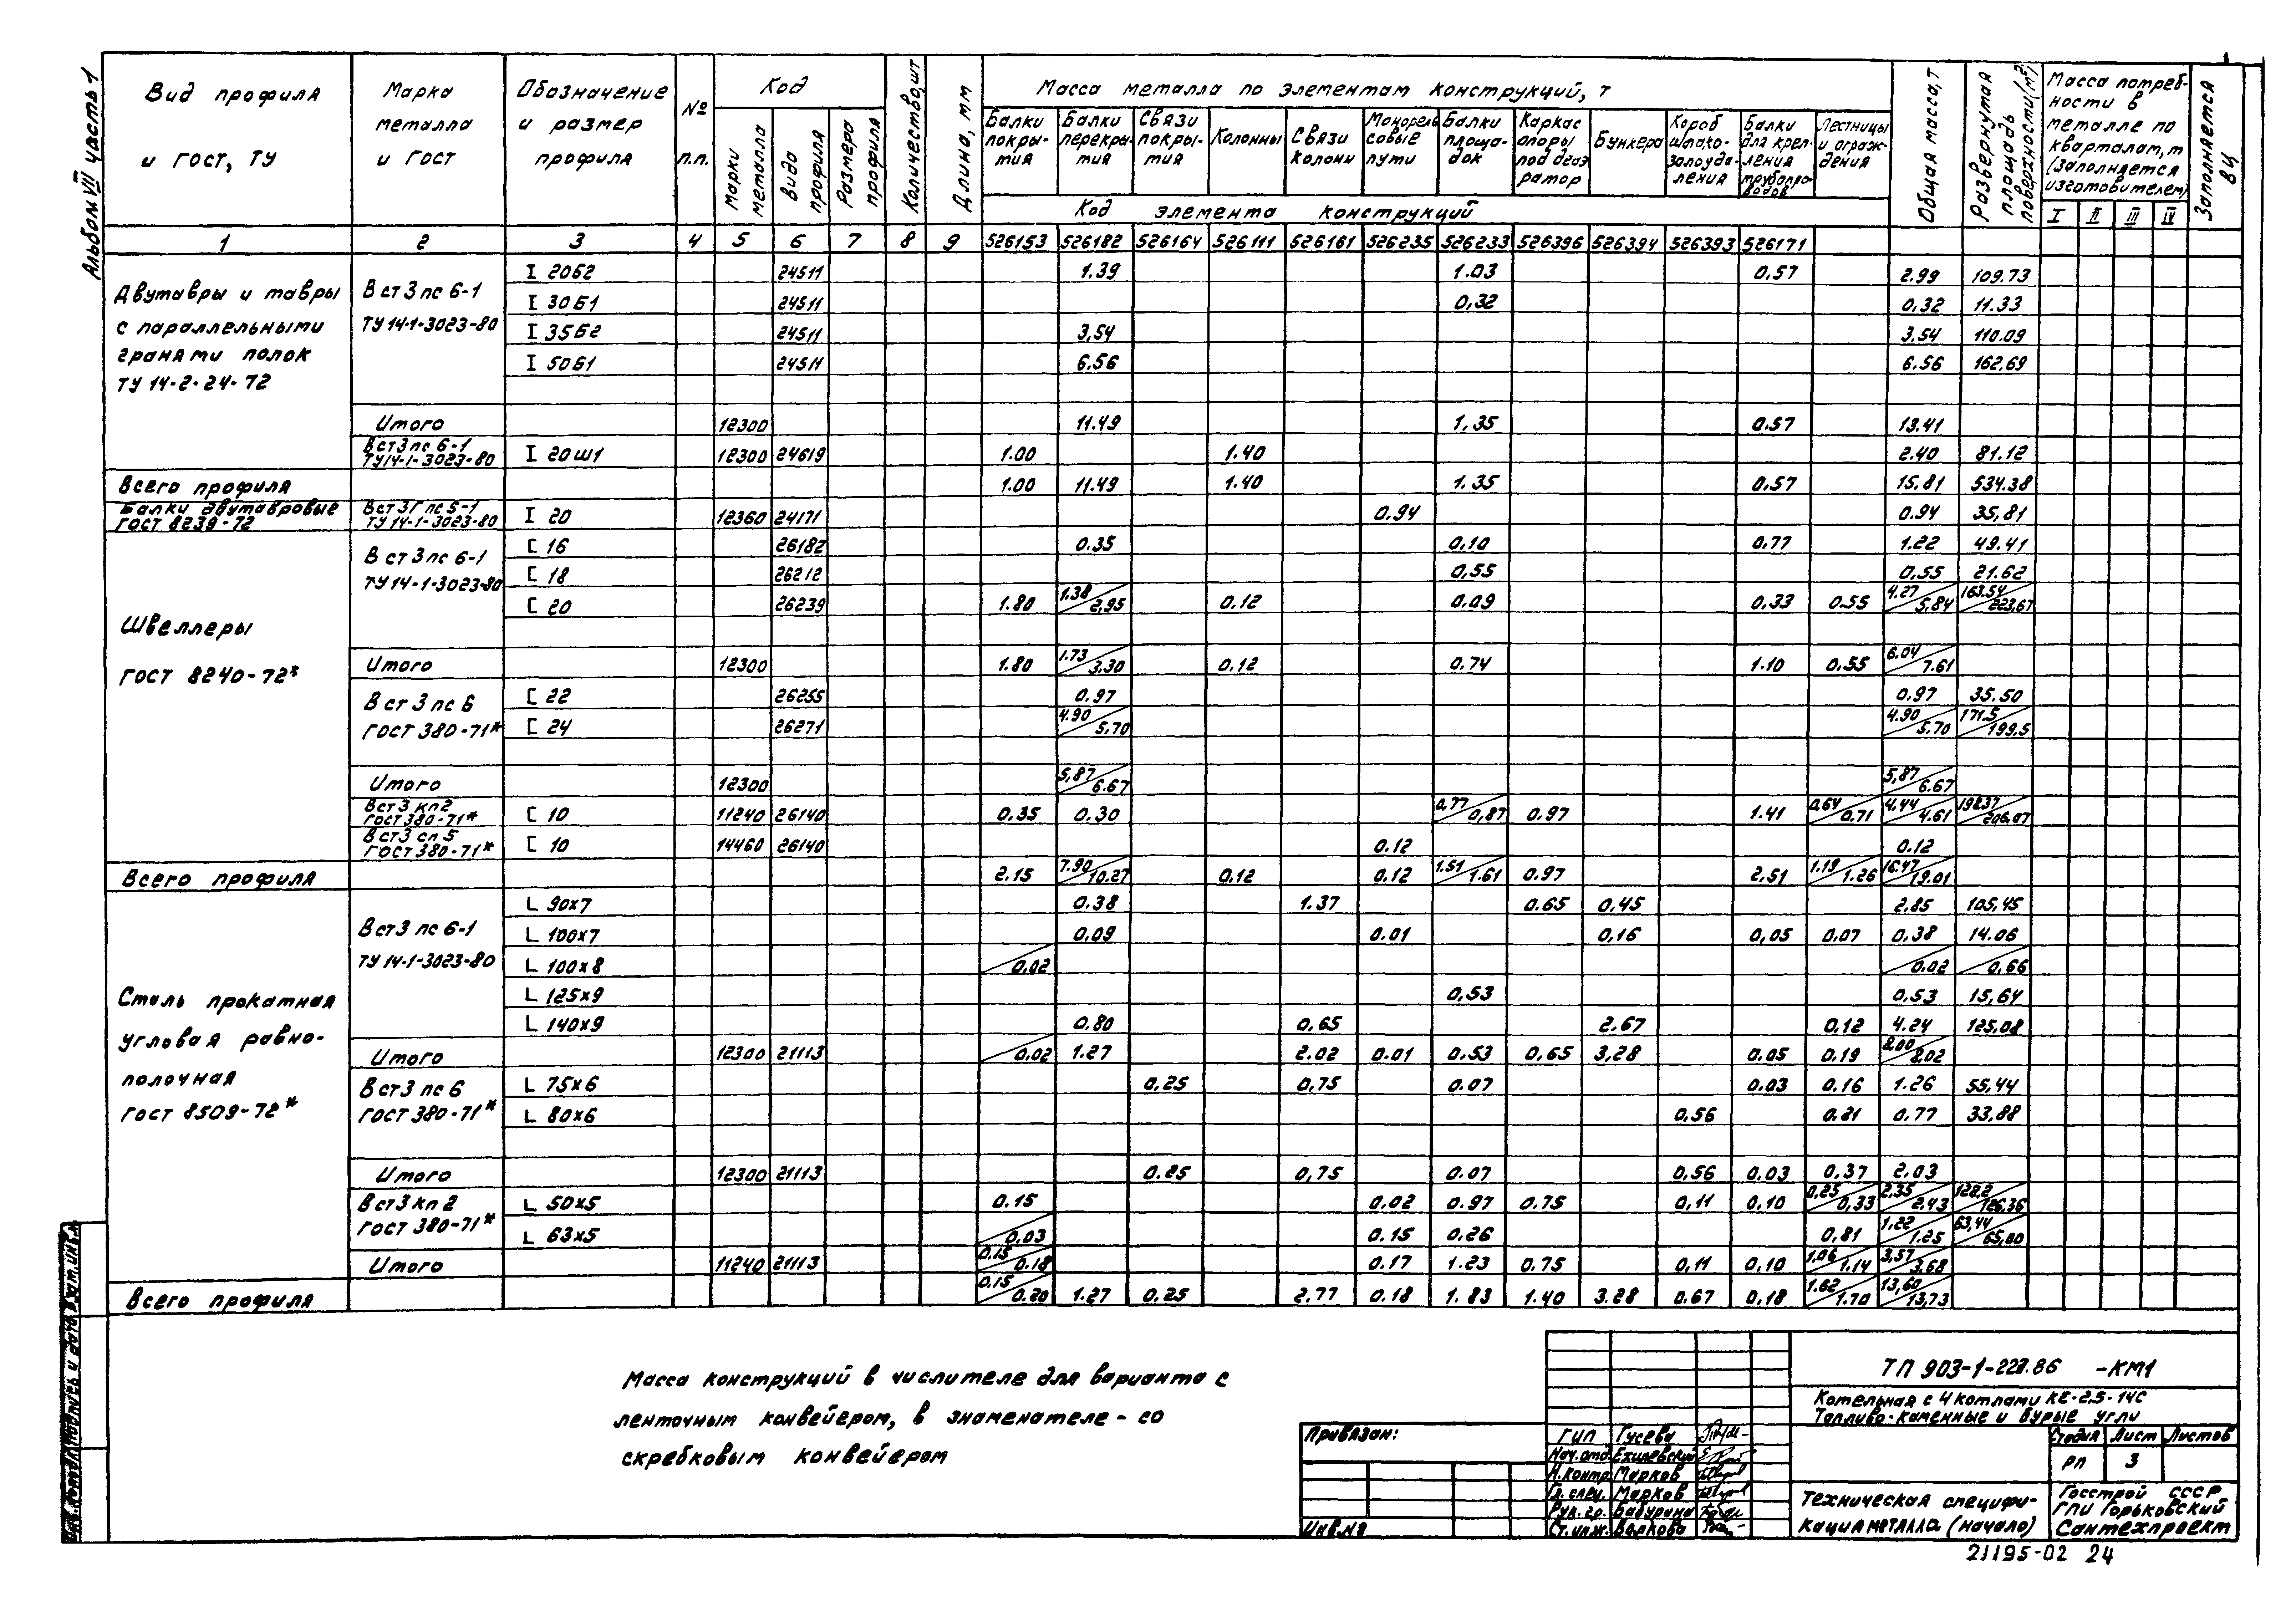 Альбом VII часть 1
Вид профиля и ГОСТ, ТУ
Марка металла и ГОСТ
Обозначение и размер профиля
№ п.п.
Код
Марки металла
вида профиля
Размера профиля
Количество, шт
Длина, мм
Масса металла по элементам конструкций, т
Балки покры-тия
Балки перекры-тия
Связи покры-тия
Колонны
Связи колонн
Монорель совые пути
Балки площа-док
Каркас опоры под деаэ ратор
Бункера
Короб шлако-золоуда-ления
Балки для креп-ления трубопро-водов
Лестницы и ограж-дения
Код элемента конструкций
Общая масса, т
Развернутая площадь поверхности (м²)
Масса потреб-ности в металле по кварталам, т (заполняется изготовителем)
I II III IV
Заполняется ВЦ
1 2 3 4 5 6 7 8 9 526153 526182 526164 526111 526161 526235 526233 526396 526394 526393 526171
Двутавры и тавры с параллельными гранями полок ТУ 14-2-24-72
Вст3пс6-1 ТУ14-1-3023-80
I 20Б2 24511 1.39 1.03 0.57 2.99 109.73
I 30Б1 24511 0,32 0.32 11.33
I 35Б2 24511 3,54 3,54 110.09
I 50Б1 24511 6.56 6.56 162.69
Итого 12300 11.49 1.35 0.57 13.41
Вст3пс6-1 ТУ14-1-3023-80 I 20Ш1 12300 24619 1.00 1.40 2.40 81.12
Всего профиля 1.00 11.49 1.40 1.35 0.57 15.81 534.38
Балки двутавровые ГОСТ 8239-72 Вст3Гпс5-1 ТУ14-1-3023-80 I 20 12360 24171 0.94 0.94 35,81
Швеллеры ГОСТ 8240-72*
Вст3пс6-1 ТУ14-1-3023-80
[ 16 26182 0.35 0.10 0.77 1.22 49.41
[ 18 26212 0,55 0,55 21.62
[ 20 26239 1.80 1.38/2,95 0.12 0.09 0.33 0.55 4.27/5,84 163.54/223,67
Итого 12300 1.80 1.73/3.30 0.12 0.74 1.10 0,55 6.04/7.61
Вст3пс6 ГОСТ 380-71*
[ 22 26255 0.97 0.97 35.50
[ 24 26271 4.90/5,70 4.90/5.70 171.5/199.5
Итого 12300 5,87/6.67 5,87/6.67
Вст3кп2 ГОСТ380-71* [ 10 11240 26140 0.35 0.30 0,77/0,87 0.97 1.41 0,64/0.71 4.44/4.61 198.37/206.07
Вст3сп5 ГОСТ380-71* [ 10 14460 26140 0.12 0.12
Всего профиля 2.15 7.90/10.27 0.12 0.12 1.51/1.61 0.97 2,51 1.19/1.26 16.47/19.01
Сталь прокатная угловая равно-полочная ГОСТ 8509-72*
Вст3пс6-1 ТУ14-1-3023-80
L 90x7 0.38 1.37 0.65 0.45 2.85 105.45
L 100x7 0.09 0.01 0,16 0,05 0.07 0,38 14.06
L 100x8 0.02 0.02 0,66
L 125x9 0,53 0.53 15,64
L 140x9 0.80 0,65 2.67 0.12 4.24 125.08
Итого 12300 21113 0.02 1.27 2.02 0.01 0.53 0,65 3,28 0.05 0.19 8,00/8,02
Вст3пс6 ГОСТ380-71*
L 75x6 0,25 0,75 0.07 0.03 0.16 1.26 55.44
L 80x6 0,56 0.21 0.77 33,88
Итого 12300 21113 0.25 0,75 0.07 0,56 0.03 0,37 2.03
Вст3кп2 ГОСТ380-71*
L 50x5 0.15 0.02 0.97 0.75 0,11 0,10 0,25/0,33 2,35/2.43 122,2/126,36
L 63x5 0.03 0.15 0.26 0,81 1.22/1.25 63,44/65,00
Итого 11240 21113 0.15/0.18 0.17 1.23 0.75 0,11 0,10 1,06/1.14 3,57/3,68
Всего профиля 0.15/0.20 1.27 0.25 2.77 0.18 1.83 1.40 3.28 0.67 0,18 1.62/1.70 13,60/13,73
Масса конструкций в числителе для варианта с
ленточным конвейером, в знаменателе - со
скребковым конвейером
Привязан:
Инв.№
ГИП Гусева
Нач.отд. Ехилевский
Н.контр Марков
Гл.спец. Марков
Рук.гр. Бабурина
Ст.инж. Волкова
ТП 903-1-227.86 -КМ1
Котельная с 4 котлами КЕ-2,5-14С
Топливо-каменные и бурые угли
Стадия Лист Листов
РП 3
Техническая специфи-
кация металла (начало)
Госстрой СССР
ГПИ Горьковский
Сантехпроект
21195-02 24